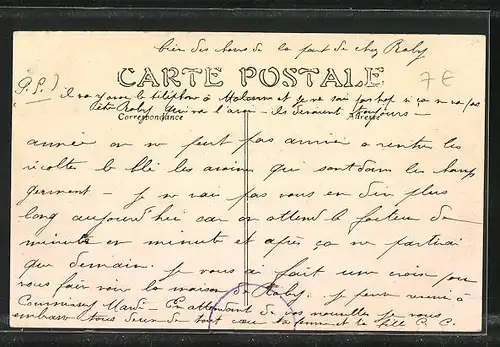 bien des choses de la part de chez Roby
CARTE POSTALE
7 €
(P.S.) il va y avoir le téléphone à et je ne sais pas trop si ça ne va pas
être Roby qui va l'avoir - ils devaient toujours -
Correspondance
Adresse
année on ne peut pas arriver a rentrer les
récoltes le blé les avoines qui sont dans les champs
germent - je ne vais pas vous en dire plus
long aujourd'hui car on attend le facteur de
minute en minute et après ça ne partirai
que demain. Je vous ai fait une croix pour
vous faire voir la maison de Roby. je pense venir à
Mardi - En attendant de vos nouvelles je vous
embrasse tous deux de tout cœur ta femme et ta fille C. C.